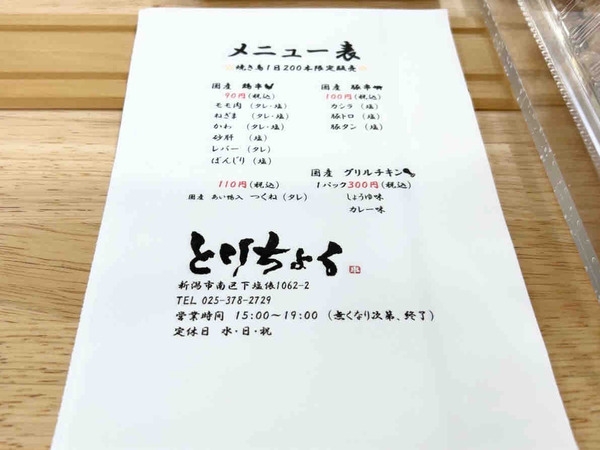 メニュー表
焼き鳥1日200本限定販売
国産 鶏串
90円(税込)
モモ肉 (タレ・塩)
ねぎま (タレ・塩)
かわ (タレ・塩)
砂肝 (塩)
レバー (タレ)
ぼんじり (塩)
国産 豚串
100円(税込)
カシラ (塩)
豚トロ (塩)
豚タン (塩)
110円(税込)
国産 あい鴨入 つくね (タレ)
国産 グリルチキン
1パック300円(税込)
しょうゆ味
カレー味
とりちょく
新潟市南区下塩俵1062-2
TEL 025-378-2729
営業時間 15:00~19:00 (無くなり次第、終了)
定休日 水・日・祝